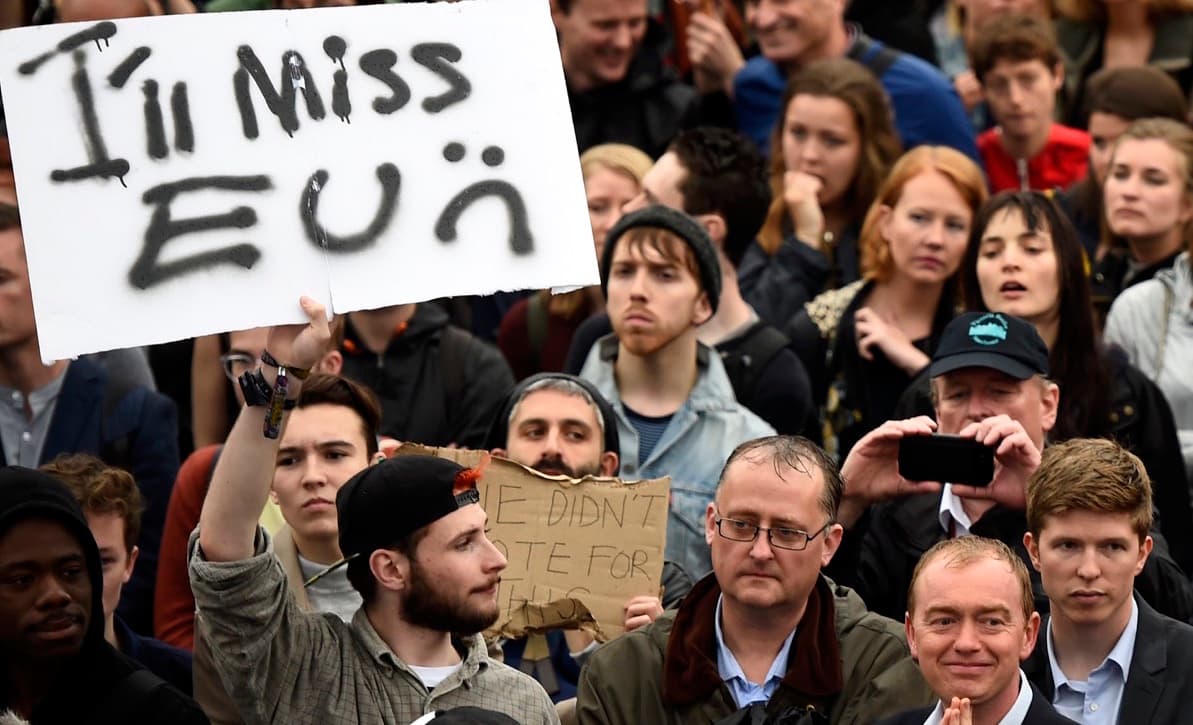 I'll Miss
EU :(
E DIDN'T
OTE FOR
THIS